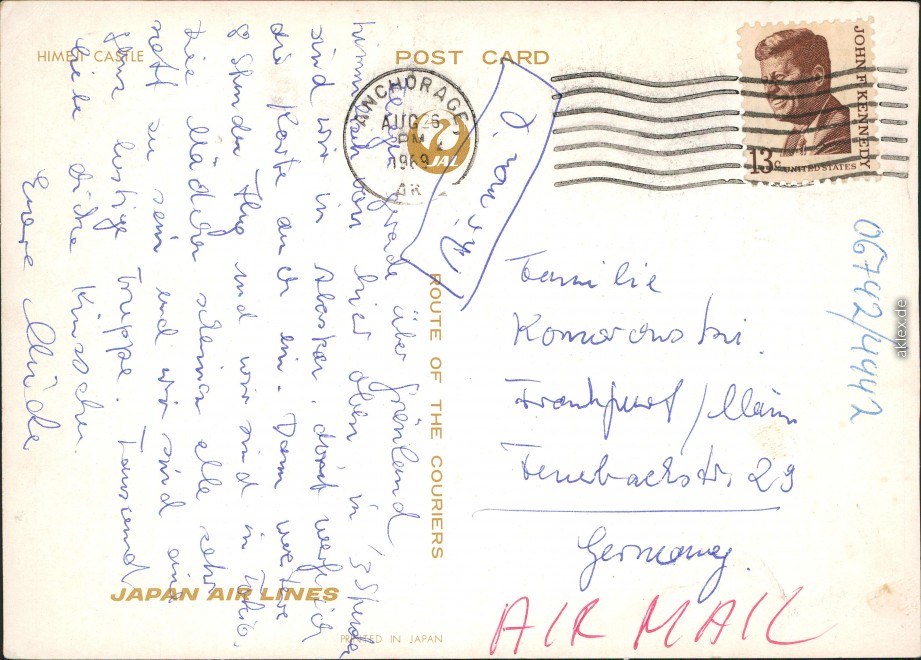 HIMEJI CASTLE
POST CARD
ANCHORAGE,
AUG 26
PM
1969
AK
JAL
JOHN F KENNEDY
13c
UNITED STATES
fliege gerade über Grönland
himmlisch hier oben in 3 Stunden
sind wir in Alaska, dort werfe ich
die Karte auch ein. Dann weitere
8 Stunden Flug und wir sind in Tokio.
Die Mädchen scheinen alle sehr
nett zu sein und wir sind eine
ganz lustige Truppe. Tausend
liebe dicke Küsschen
Eure
ROUTE OF THE COURIERS
Familie
Komorowski
Frankfurt / Main
Feuerbachstr. 29
Germany.
AIR MAIL
06742/4442
JAPAN AIR LINES
PRINTED IN JAPAN
aklex.de